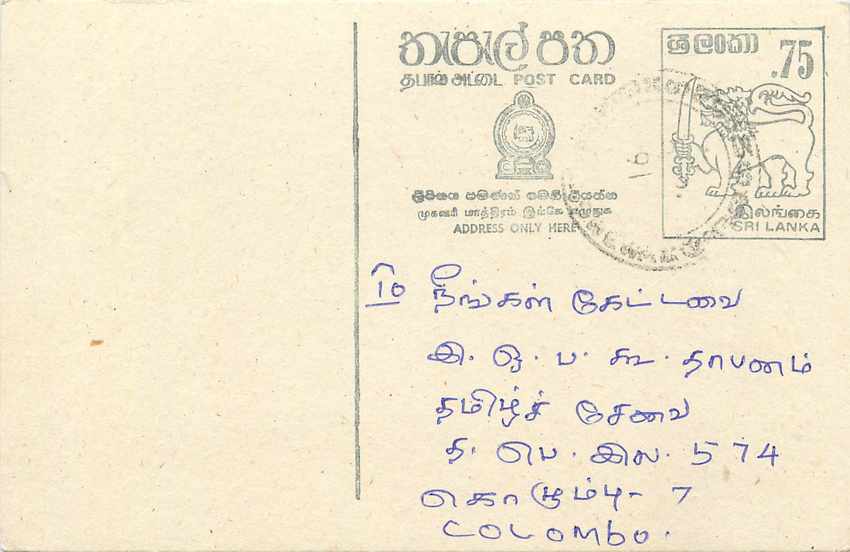 තැපැල් පත
தபால் அட்டை POST CARD
ශ්‍රී ලංකා
.75
ලිපිනය පමණක් මෙහි ලියන්න
முகவரி மாத்திரம் இங்கே எழுதுக
ADDRESS ONLY HERE
இலங்கை
SRI LANKA
16
To நீங்கள் கேட்டவை
இ. ஒ. ப. கூ. தாபனம்
தமிழ்ச் சேவை
த. பெ. இல. 574
கொழும்பு - 7
COLOMBO.